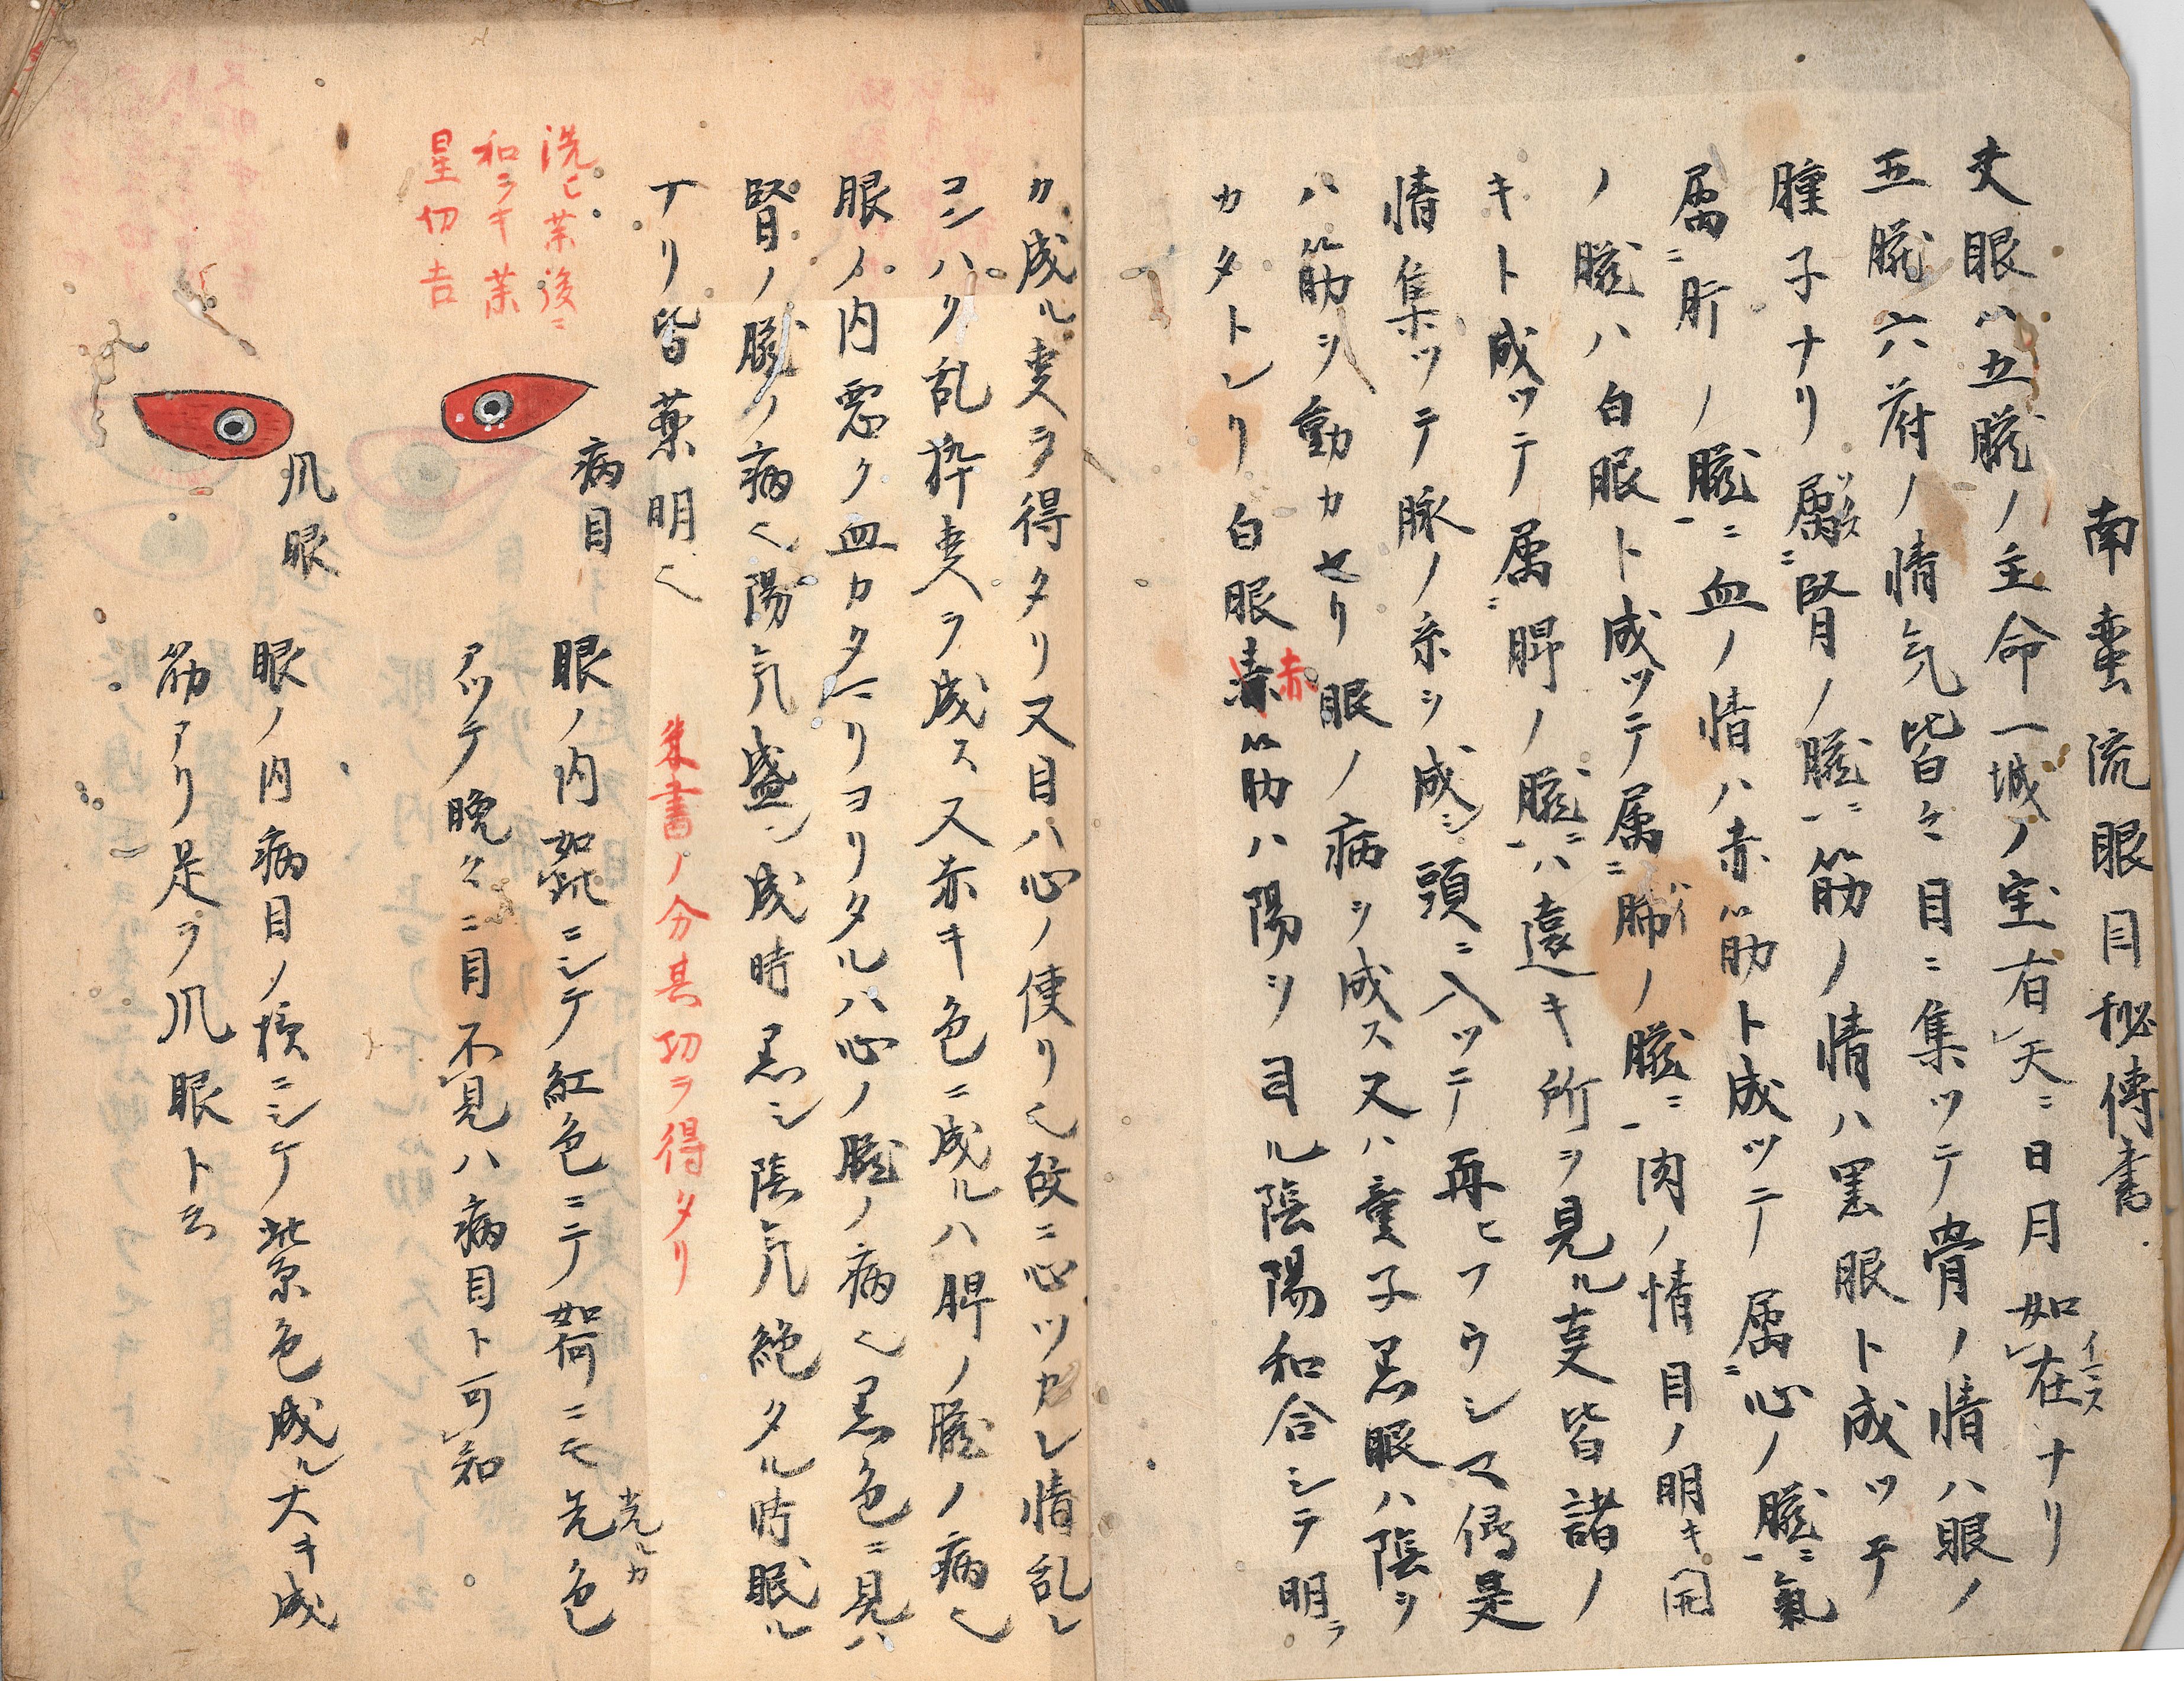 南蛮流眼目秘傳書
夫眼ハ五臓ノ主命一城ノ宝有天ニ日月如在ナリ
イマス
五臓六府ノ情気皆々目ニ集ツテ骨ノ情ハ眼ノ
瞳子ナリ属ニ腎ノ臓ニ筋ノ情ハ黒眼ト成ツテ
属ニ肝ノ臓ニ血ノ情ハ赤筋ト成ツテ属ニ心ノ臓ニ氣
ノ臓ハ白眼ト成ツテ属ニ肺ノ臓ニ肉ノ情目ノ明キ開
ハイ
キト成ツテ属ニ脾ノ臓ニハ遠キ所ヲ見ル叓皆諸ノ
情集ツテ脉ノ糸ヲ成シ頭ニ入ツテ再ヒフウシマ係是
ハ筋ヲ動カセリ眼ノ病ヲ成ス又ハ童子黒眼ハ陰ヲ
カタトレリ白眼赤筋ハ陽ヲ司ル陰陽和合シテ明ラ
赤
カ成ル叓ヲ得タリ又目ハ心ノ使リ也故ニ心ツカレ情乱レ
コシハリ乱叓ヲ成ス又赤キ色ニ成ルハ脾ノ臓ノ病也
眼ノ内悪ク血カタマリヨリタルハ心ノ臓ノ病也黒色ニ見ハ
腎ノ臓ノ病也陽気盛シ成時黒シ陰気絶タル時眠ル
ナリ皆薬明也
朱書ノ分其功ヲ得タリ
洗ヒ薬後ニ
和ラキ薬
星切吉
病目
眼ノ内如此ニシテ紅色ニテ如何ニモ光色
光ルカ
アツテ晩々ニ目不見ハ病目ト可知
爪眼
眼ノ内病目ノ様ニシテ紫色成ル大キ成
筋アリ是ヲ爪眼ト云